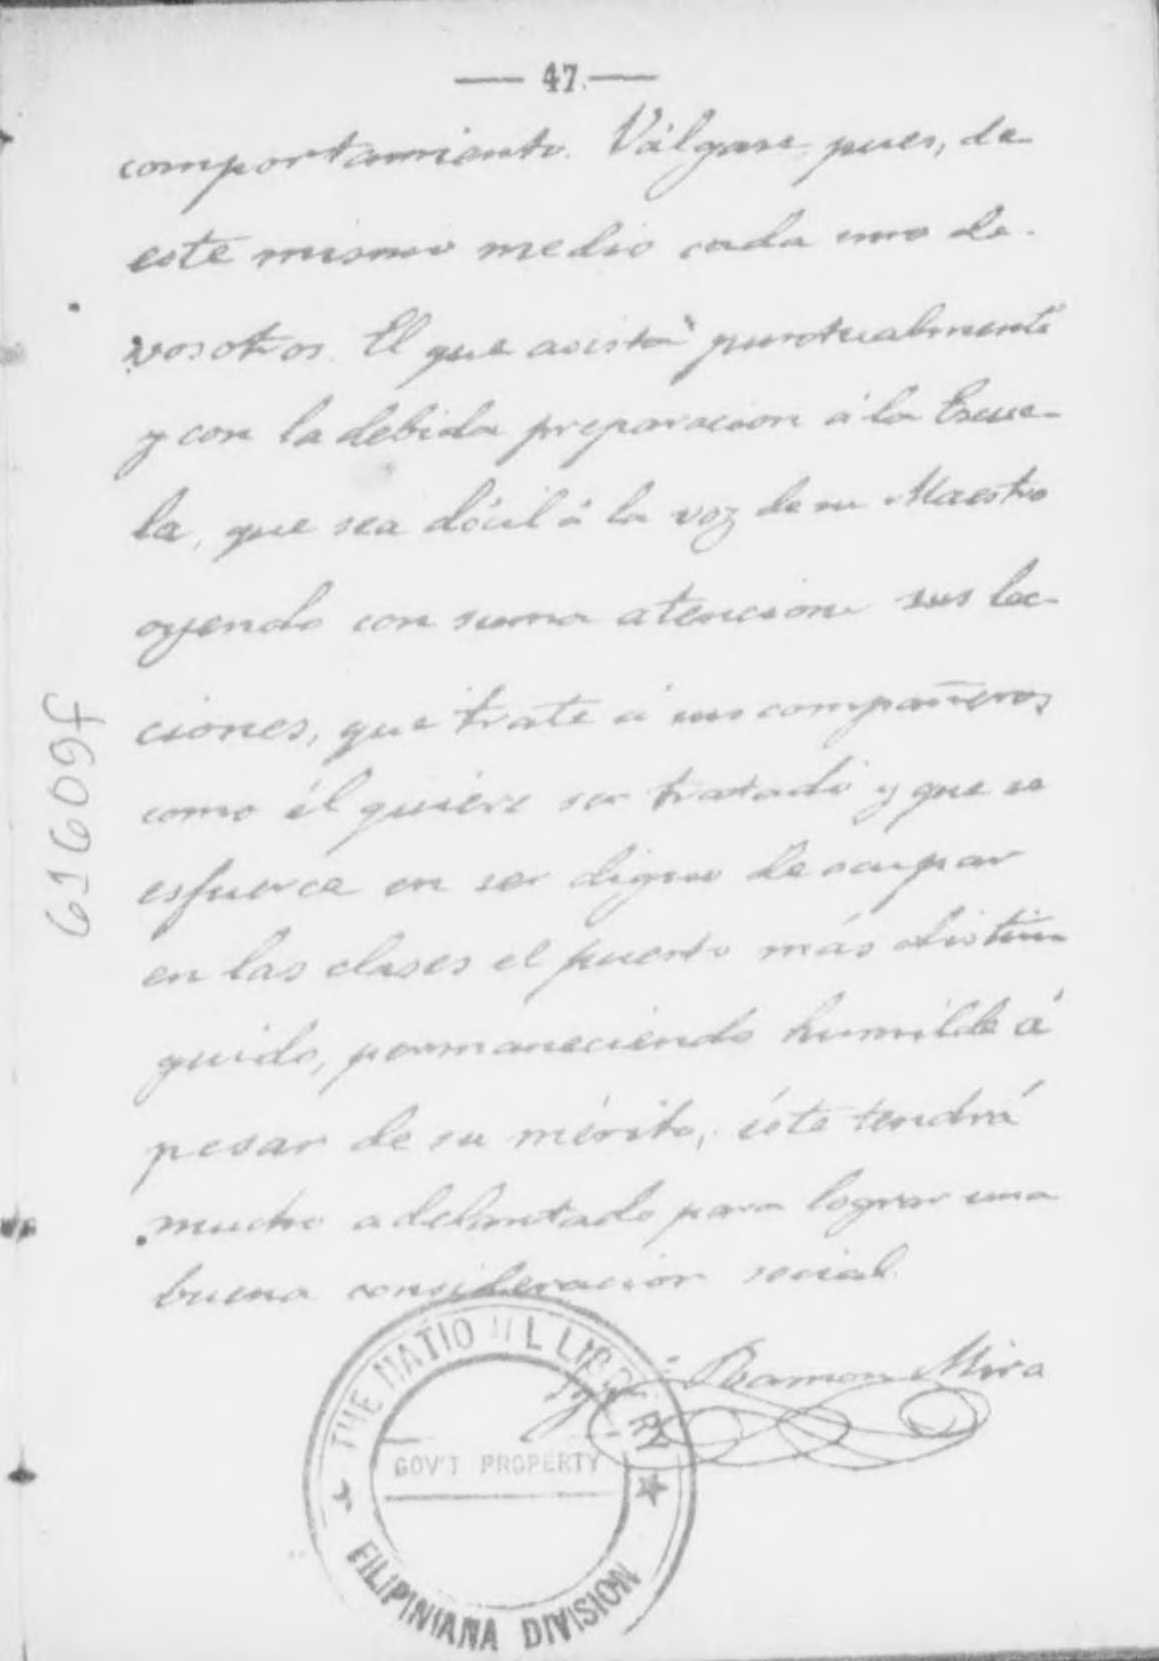 — 47. —
comportamiento. Válgase, pues, de
este mismo medio cada uno de
vosotros. El que asista puntualmente
y con la debida preparacion á la Escue-
la, que sea dócil á la voz de su Maestro
oyendo con suma atencion sus lec-
ciones, que trate á sus compañeros
como él quiere ser tratado y que se
esfuerce en ser digno de ocupar
en las clases el puesto más distin
guido, permaneciendo humilde á
pesar de su mérito, éste tendrá
mucho adelantado para lograr una
buena consideracion social.
Ramon Mira
THE NATIO L LIBRARY
GOV'T PROPERTY
FILIPINIANA DIVISION
61609f